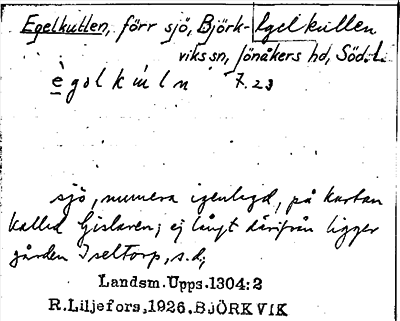 Egelkullen, förr sjö, Björk- Egelkullen
vikssn, Jönåkers hd, Söd.l.
ègəlkúln 7.23
sjö, numera igenlagd, på kartan
kallad Gislaren; ej långt därifrån ligger
gården Iseltorp, s.d;
Landsm.Upps.1304:2
R.Liljefors,1926.BJÖRKVIK